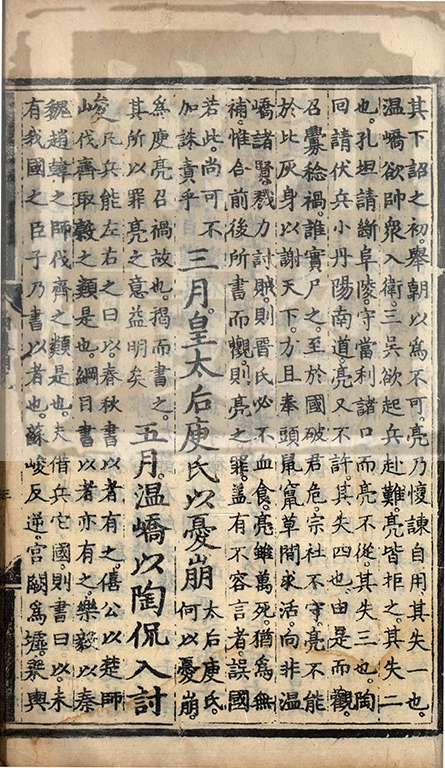 其下詔之初。舉朝以爲不可。亮乃愎諫自用。其失一也。
温嶠欲帥衆入衛。三吳欲起兵赴難。亮皆拒之。其失二
也。孔坦請斷阜陵。守當利諸口。而亮不從。其失三也。陶
回請伏兵小丹陽南道。亮又不許。其失四也。由是而觀。
召釁稔禍。誰實尸之。至於國破君危。宗社不守。亮不能
於此灰身以謝天下。方且奉頭鼠竄。草間求活。向非温
嶠諸賢戮力討賊。則晋氏必不血食。亮雖萬死。猶爲無
補。惟合前後所書而觀。則亮之罪。盖有不容言者。誤國
若此。尚可不
加誅責乎
三月。皇太后庾氏以憂崩
太后庾氏。
何以憂崩。
爲庾亮召禍故也。揭而書之。
其所以罪亮之意益明矣
五月。温嶠以陶侃入討
峻
凡兵能左右之曰以。春秋書以者有之。僖公以楚師
伐齊取穀之類是也。綱目書以者亦有之。樂毅以秦
魏趙韓之師伐齊之類是也。夫借兵它國。則書曰以。未
有我國之臣子乃書以者也。蘇峻反逆。宮闕爲墟。乘輿